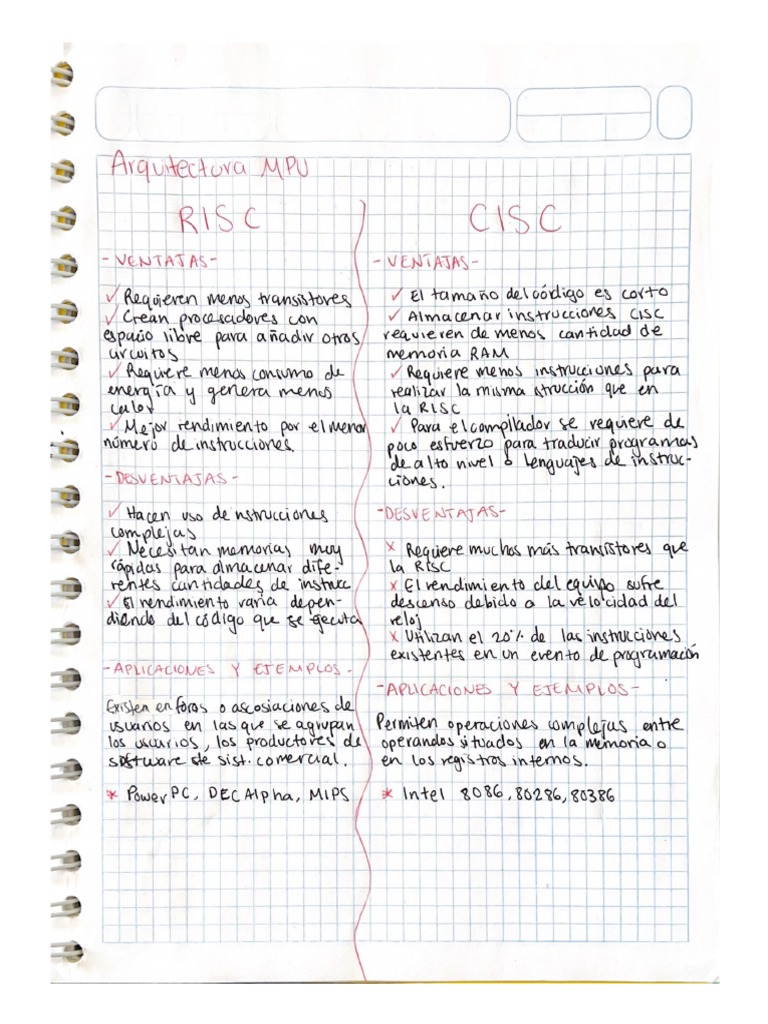 Arquitectura MPU
RISC
- VENTAJAS -
✓ Requieren menos transistores
✓ Crean procesadores con
espacio libre para añadir otros
circuitos
✓ Requiere menos consumo de
energía y genera menos
calor
✓ Mejor rendimiento por el menor
número de instrucciones.
- DESVENTAJAS -
✓ Hacen uso de nstrucciones
complejas
✓ Necesitan memorias muy
rápidas para almacenar dife-
rentes cantidades de instrucc
✓ El rendimiento varia depen-
diendo del código que se ejecuta
- APLICACIONES Y EJEMPLOS -
Existen en foros o ascosiaciones de
usuarios en las que se agrupan
los usuarios, los productores de
software de sist. comercial.
* PowerPC, DEC Alpha, MIPS
CISC
- VENTAJAS -
✓ El tamaño del córdigo es corto
✓ Almacenar instrucciones CISC
requieren de menos cantidad de
memoria RAM
✓ Requiere menos instrucciones para
realizar la misma strucción que en
la RISC
✓ Para el compilador se requiere de
poco esfuerzo para traducir programas
de alto nivel o lenguajes de instruc-
ciones.
- DESVENTAJAS -
× Requiere muchos más transistores que
la RISC
× El rendimiento del equipo sufre
descenso debido a la velocidad del
reloj
× Utilizan el 20% de las instrucciones
existentes en un evento de programación
- APLICACIONES Y EJEMPLOS -
Permiten operaciones complejas entre
operandos situados en la memoria o
en los registros internos.
* Intel 8086, 80286, 80386